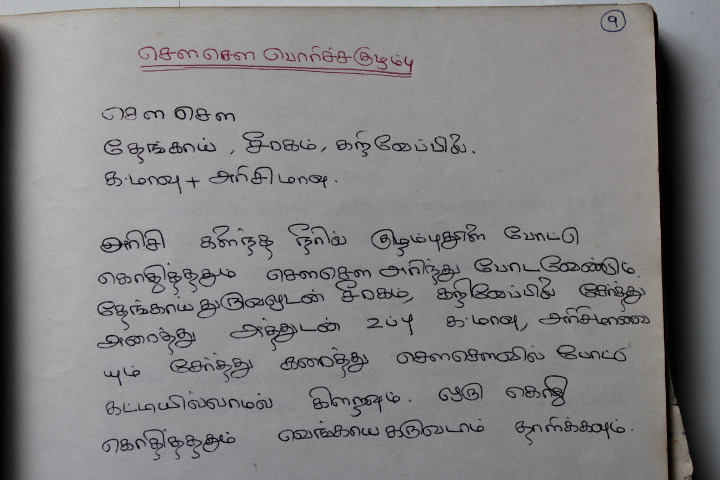 9
சௌசௌ பொரிச்சகுழம்பு
சௌ சௌ
தேங்காய், சீரகம், கறிவேப்பிலை.
க.மாவு + அரிசிமாவு.
அரிசி களைந்த நீரில் குழம்புதூள் போட்டு
கொதித்ததும் சௌசௌ அரிந்து போடவேண்டும்.
தேங்காய் துருவலுடன் சீரகம், கறிவேப்பிலை சேர்த்து
அரைத்து அத்துடன் உப்பு க.மாவு, அரிசிமாவை
யும் சேர்த்து கரைத்து சௌசௌவில் போட்டு
கட்டியில்லாமல் கிளறவும். ஒரு கொதி
கொதித்ததும் வெங்காய கருவடாம் தாளிக்கவும்.